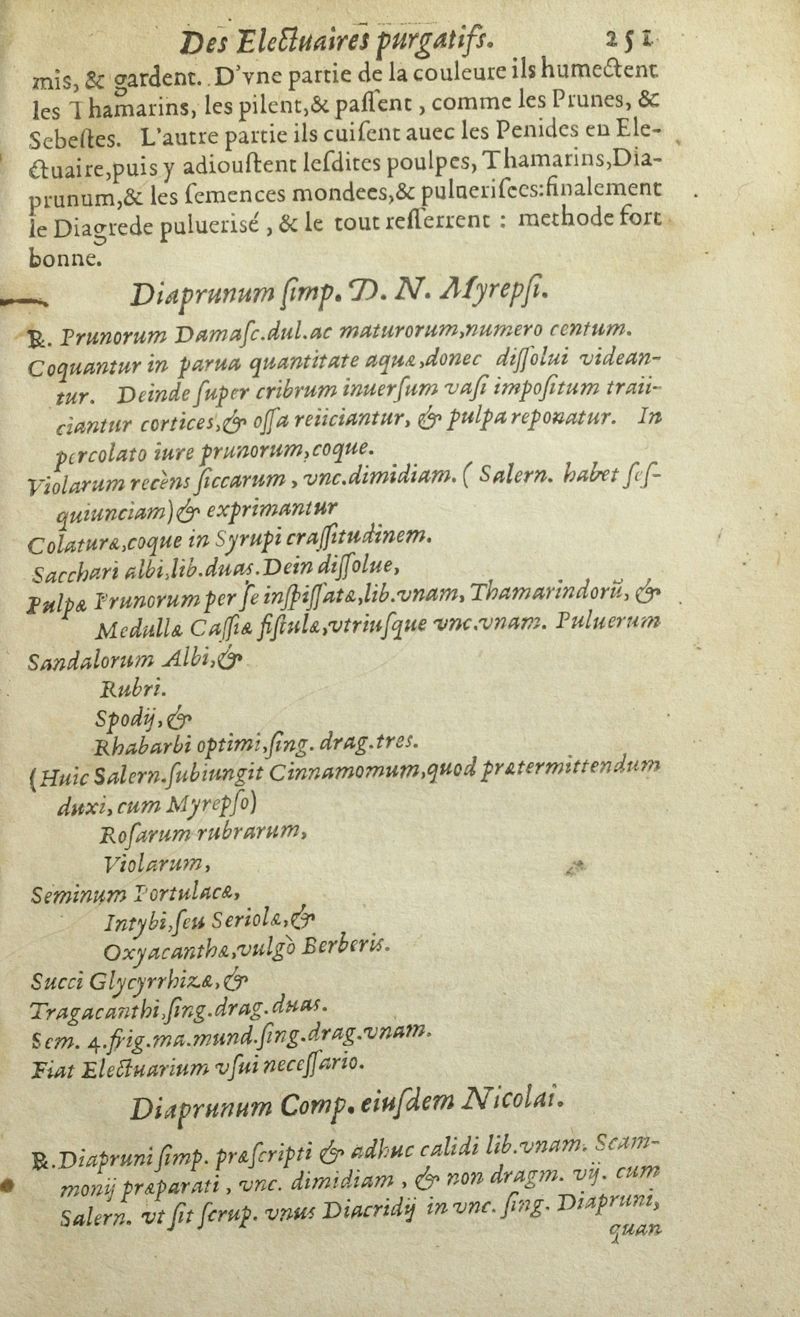 Des Electuaires purgatifs. 251
mis, & gardent. D'vne partie de la couleure ils humectent
les Thamarins, les pilent,& paſſent, comme les Prunes, &
Sebeſtes. L'autre partie ils cuiſent auec les Penides en Ele-
ctuaire,puis y adiouſtent leſdites poulpes, Thamarins,Dia-
prunum,& les ſemences mondees,& pulueriſees:finalement
le Diagrede puluerisé, & le tout reſſerrent : methode fort
bonne.
Diaprunum ſimp. D. N. Myrepſi.
℞. Prunorum Damaſc.dul.ac maturorum,numero centum.
Coquantur in parua quantitate aquæ,donec diſſolui videan-
tur. Deinde ſuper cribrum inuerſum vaſi impoſitum traii-
ciantur cortices,& oſſa reiiciantur, & pulpa reponatur. In
percolato iure prunorum,coque.
Violarum recèns ſiccarum, vnc.dimidiam. ( Salern. habet ſeſ-
quiunciam)& exprimantur
Colaturæ,coque in Syrupi craſſitudinem.
Sacchari albi,lib.duas.Dein diſſolue,
Pulpæ Prunorum per ſe inſpiſſatæ,lib.vnam, Thamarindorũ, &
Medullæ Caſſiæ fiſtulæ,vtriuſque vnc.vnam. Puluerum
Sandalorum Albi,&
Rubri.
Spodij, &
Rhabarbi optimi,ſing. drag.tres.
(Huic Salern.ſubiungit Cinnamomum,quod prætermittendum
duxi, cum Myrepſo)
Roſarum rubrarum,
Violarum,
Seminum Portulacæ,
Intybi,ſeu Seriolæ,&
Oxyacanthæ,vulgò Berberis.
Succi Glycyrrhizæ, &
Tragacanthi,ſing.drag.duas.
Sem. 4.frig.ma.mund.ſing.drag.vnam.
Fiat Electuarium vſui neceſſario.
Diaprunum Comp. eiuſdem Nicolai.
℞.Diapruni ſimp. præſcripti & adhuc calidi lib.vnam. Scam-
monij præparati, vnc. dimidiam, & non dragm. vij. cum
Salern. vt ſit ſcrup. vnus Diacridij in vnc. ſing. Diapruni,
quan